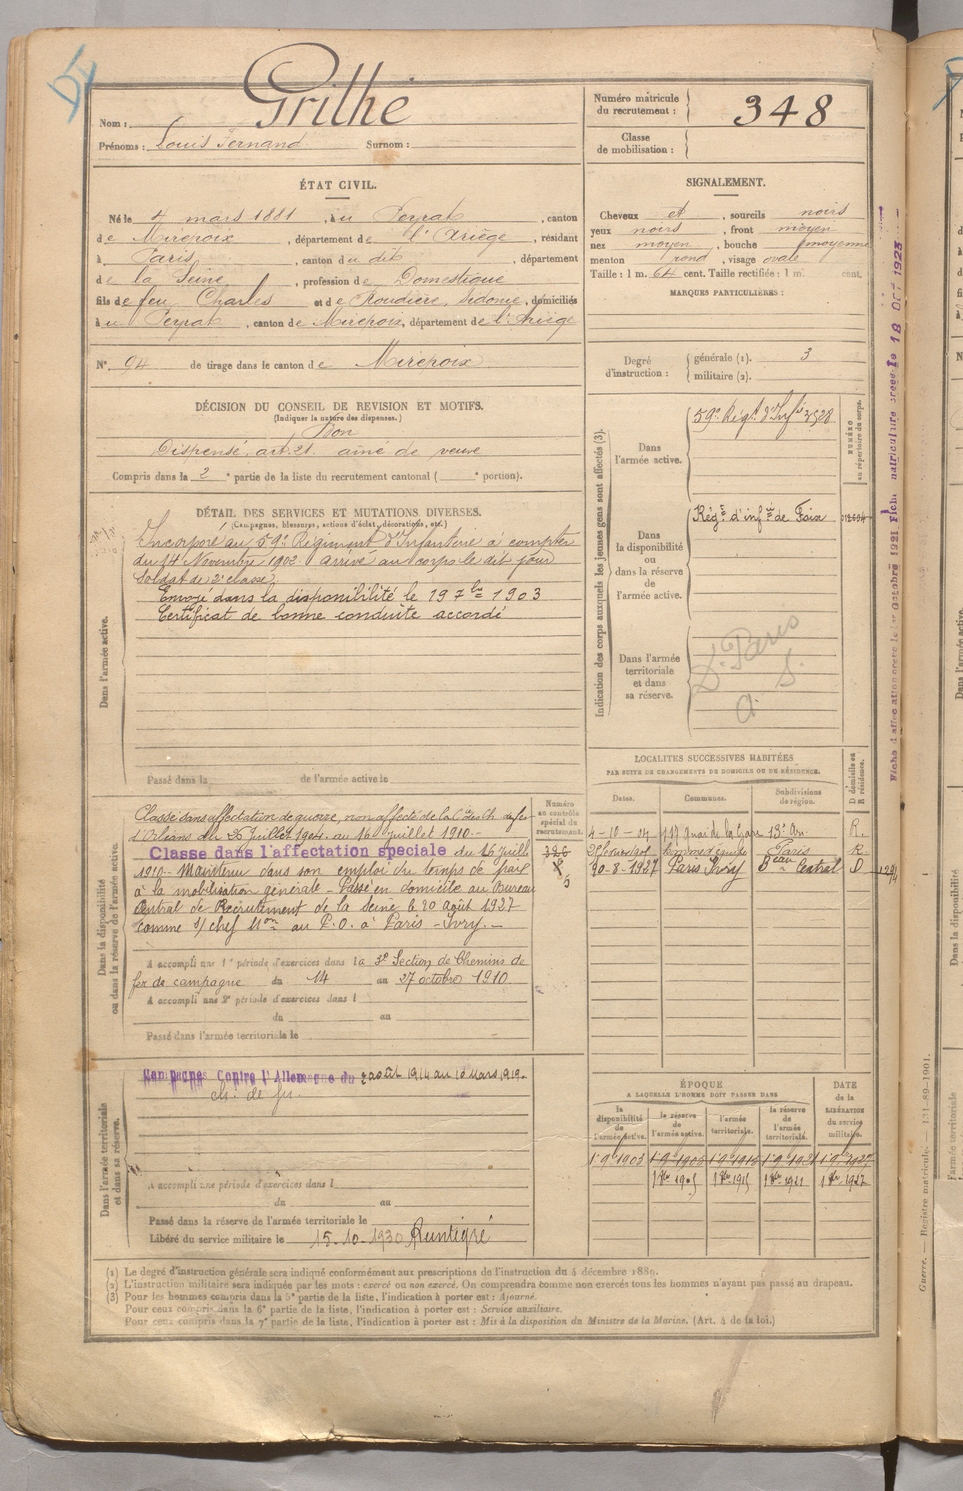 Grithé
Nom :
Prénoms : Louis Fernand Surnom :
Numéro matricule du recrutement : 348
Classe de mobilisation :
ÉTAT CIVIL.
Né le 4 mars 1881, à u Peyrat, canton
de Mirepoix, département de l'Ariège, résidant
à Paris, canton du dit, département
de la Seine, profession de Domestique
fils de feu Charles et de Roudière, Sidonie, domiciliés
à u Peyrat, canton de Mirepoix, département de l'Ariège
N° 94 de tirage dans le canton de Mirepoix
SIGNALEMENT.
Cheveux et, sourcils noirs
yeux noirs, front moyen
nez moyen, bouche moyenne
menton rond, visage ovale
Taille : 1 m. 64 cent. Taille rectifiée : 1 m. cent.
MARQUES PARTICULIÈRES :
Degré d'instruction : générale (1). 3
militaire (2).
DÉCISION DU CONSEIL DE REVISION ET MOTIFS.
(Indiquer la nature des dispenses.)
Bon
Dispensé art. 21. ainé de veuve
Compris dans la 2e partie de la liste du recrutement cantonal ( e portion).
DÉTAIL DES SERVICES ET MUTATIONS DIVERSES.
(Campagnes, blessures, actions d'éclat, décorations, etc.)
Dans l'armée active.
Incorporé au 59e Régiment d'Infanterie à compter
du 14 Novembre 1902 arrivé au corps le dit jour
Soldat de 2e classe.
Envoyé dans la disponibilité le 19 7bre 1903
Certificat de bonne conduite accordé
Passé dans la de l'armée active le
Indication des corps auxquels les jeunes gens sont affectés (3).
NUMÉRO au répertoire du corps.
Dans l'armée active.
59e Régt d'Infie 3528
Dans la disponibilité ou dans la réserve de l'armée active.
Régt d'infie de Foix 012604
Dans l'armée territoriale et dans sa réserve.
Paris
Fiche matriculaire créée le 18 OCT 1923
LOCALITÉS SUCCESSIVES HABITÉES
PAR SUITE DE CHANGEMENTS DE DOMICILE OU DE RÉSIDENCE.
D domicile ou R résidence.
Dates. Communes. Subdivisions de région.
4-10-04 117 quai de la Gare 13e Arr. R.
Paris R
20-8-1927 Paris Ivry Beau Central D
Dans la disponibilité ou dans la réserve de l'armée active.
Numéro au contrôle spécial du recrutement.
Classé dans affectation de guerre, non affecté de la Cie du Ch. de fer
d'Orléans du 26 Juillet 1904 au 16 juillet 1910.-
Classé dans l'affectation spéciale du 16 Juill
1910 - Maintenu dans son emploi du temps de paix
à la mobilisation générale - Passé en domicile au Bureau
Central de Recrutement de la Seine le 20 août 1927
comme s/chef Mon au P.O. à Paris - Ivry. -
A accompli une 1re période d'exercices dans la 3e Section de Chemins de
fer de campagne du 14 au 27 octobre 1910
A accompli une 2e période d'exercices dans l
du au
Passé dans l'armée territoriale le
Dans l'armée territoriale et dans sa réserve.
Campagnes Contre l'Allemagne du 2 août 1914 au 10 Mars 1919.
ch. de fer
A accompli une période d'exercices dans l
du au
Passé dans la réserve de l'armée territoriale le
Libéré du service militaire le 15.10.1930
ÉPOQUE
A LAQUELLE L'HOMME DOIT PASSER DANS
la disponibilité de l'armée active.
la réserve de l'armée active.
l'armée territoriale.
la réserve de l'armée territoriale.
DATE de la LIBÉRATION du service militaire.
1903
1 9bre 1905 1 9bre 1915 1 9bre 1921 1 9bre 1927
(1) Le degré d'instruction générale sera indiqué conformément aux prescriptions de l'instruction du 4 décembre 1889.
(2) L'instruction militaire sera indiquée par les mots : exercé ou non exercé. On comprendra comme non exercés tous les hommes n'ayant pas passé au drapeau.
(3) Pour les hommes compris dans la 5e partie de la liste, l'indication à porter est : Ajourné.
Pour ceux compris dans la 6e partie de la liste, l'indication à porter est : Service auxiliaire.
Pour ceux compris dans la 7e partie de la liste, l'indication à porter est : Mis à la disposition du Ministre de la Marine. (Art. 4 de la loi.)
Guerre. — Registre matricule. — 131-89-1901.